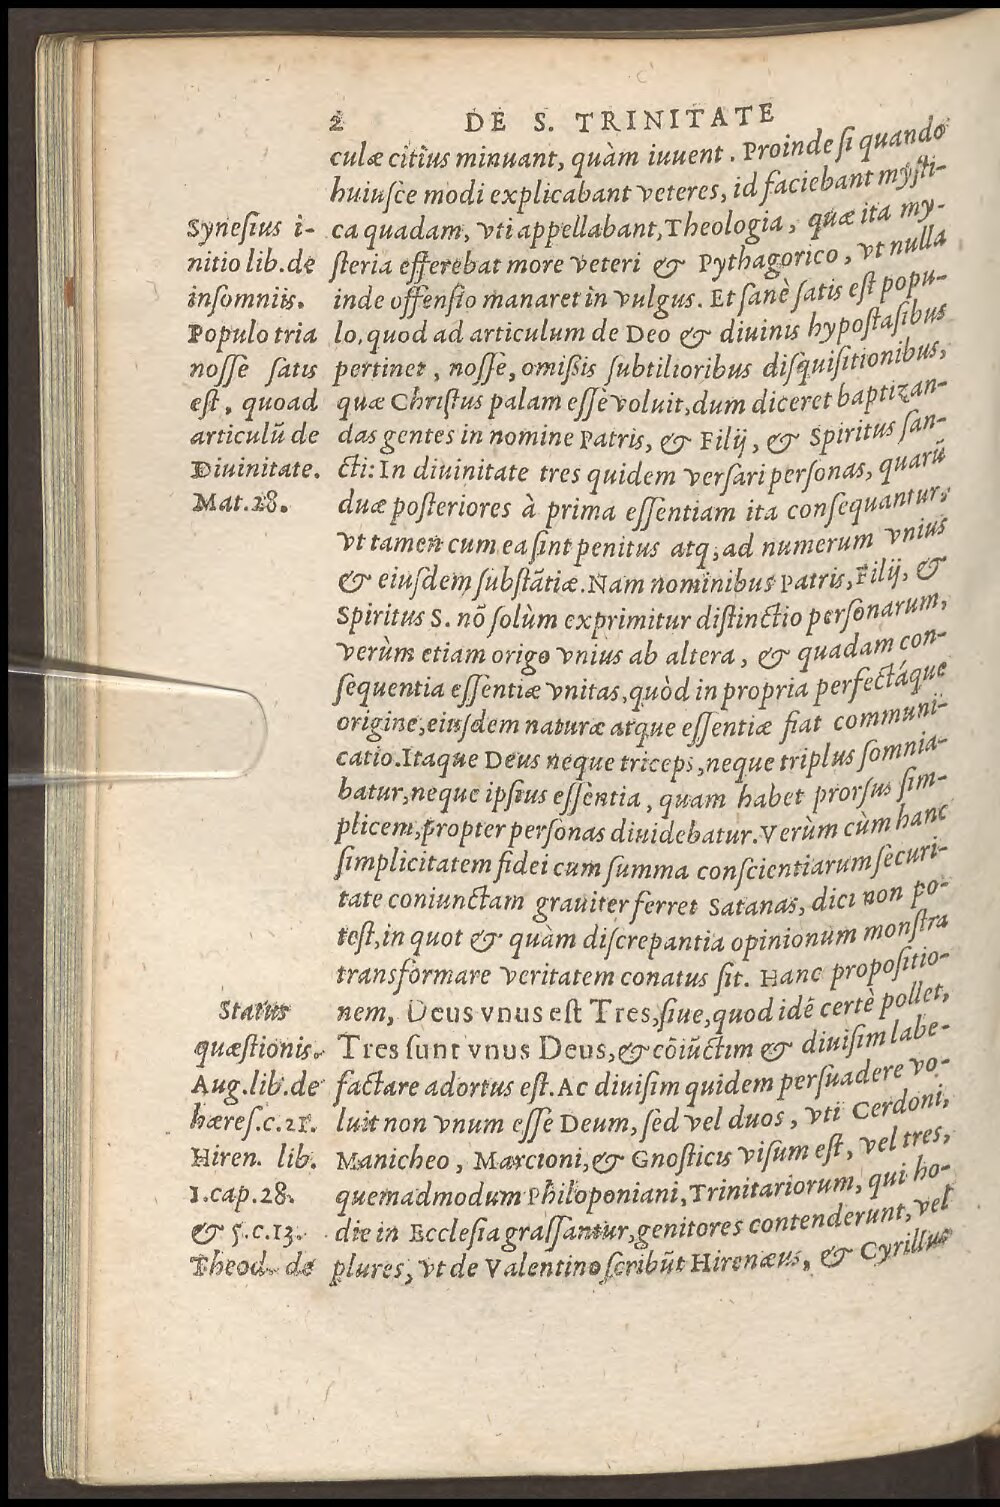 2 DE S. TRINITATE
culæ citius minuant, quàm iuuent. Proinde si quando
huiusce modi explicabant veteres, id faciebant mysti-
ca quadam, vti appellabant, Theologia, quæ ita my-
steria efferebat more veteri & Pythagorico, vt nulla
inde offensio manaret in vulgus. Et sanè satis est popu-
lo, quod ad articulum de Deo & diuinis hypostasibus
pertinet, nosse, omißis subtilioribus disquisitionibus,
quæ Christus palam esse voluit, dum diceret baptizan-
das gentes in nomine Patris, & Filij, & Spiritus san-
cti: In diuinitate tres quidem versari personas, quarū
duæ posteriores à prima essentiam ita consequantur,
vt tamen cum ea sint penitus atq; ad numerum vnius
& eiusdem substātiæ. Nam nominibus Patris, Filij, &
Spiritus S. nō solùm exprimitur distinctio personarum,
verùm etiam origo vnius ab altera, & quadam con-
sequentia essentiæ vnitas, quòd in propria perfectáque
origine, eiusdem naturæ atque essentiæ fiat communi-
catio. Itaque Deus neque triceps, neque triplus somnia-
batur, neque ipsius essentia, quam habet prorsus sim-
plicem, propter personas diuidebatur. Verùm cùm hanc
simplicitatem fidei cum summa conscientiarum securi-
tate coniunctam grauiter ferret Satanas, dici non po-
test, in quot & quàm discrepantia opinionum monstra
transformare veritatem conatus sit. Hanc propositio-
nem, Deus vnus est Tres, siue, quod idē certè pollet,
Tres sunt vnus Deus, & cōiūctim & diuisim labe-
factare adortus est. Ac diuisim quidem persuadere vo-
luit non vnum esse Deum, sed vel duos, vti Cerdoni,
Manicheo, Marcioni, & Gnosticis visum est, vel tres,
quemadmodum Philoponiani, Trinitariorum, qui ho-
die in Ecclesia grassantur, genitores contenderunt, vel
plures, vt de Valentino scribūt Hirenæus, & Cyrillus
Synesius i-
nitio lib. de
insomniis.
Populo tria
nosse satis
est, quoad
articulū de
Diuinitate.
Mat. 28.
Status
quæstionis.
Aug. lib. de
hæres. c. 21.
Hiren. lib.
1. cap. 28.
& 5. c. 13.
Theod. de